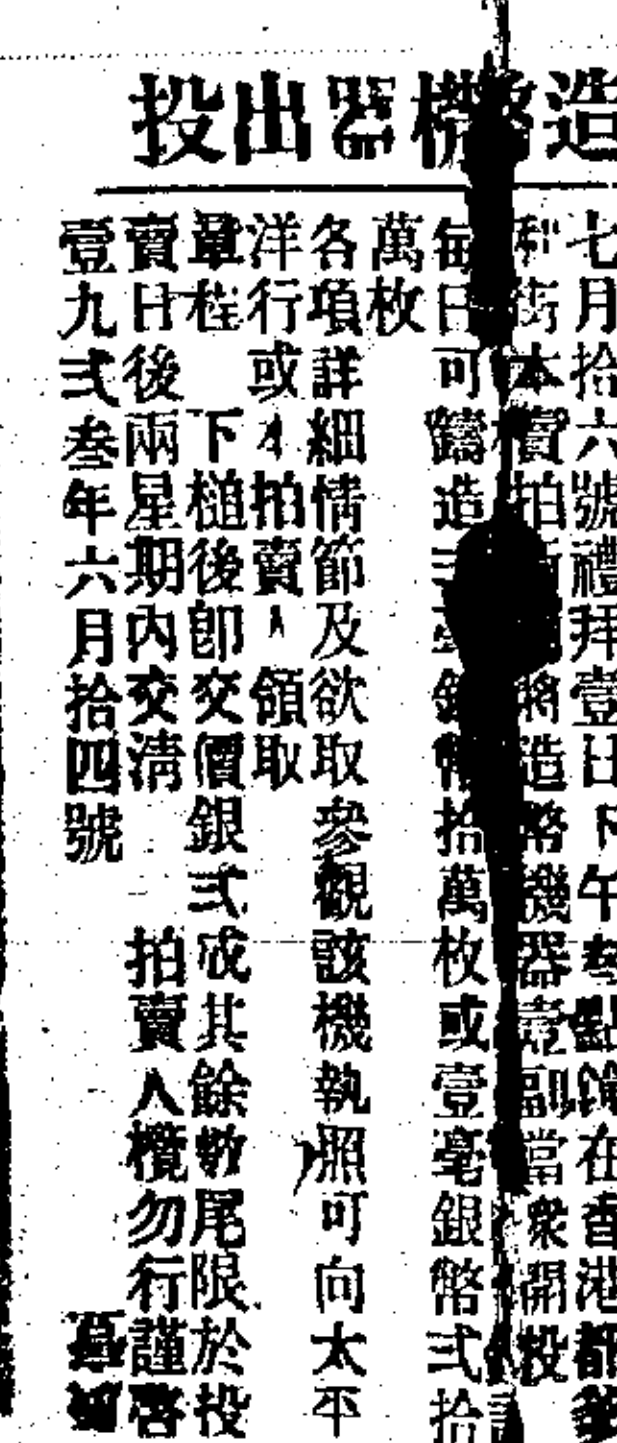 造幣機器出投
七月拾六號禮拜壹日下午叁點鐘在香港都爹
利街本賣拍將造幣機器壹副當衆開投
每日可鑄造銀幣拾萬枚或壹毫銀幣弍拾
萬枚
各項詳細情節及欲取參觀該機執照可向太平
洋行或拍賣人領取
章程 下槌後即交價銀弍成其餘數尾限於投
賣日後兩星期內交淸 拍賣人欖勿行謹啓
壹九弍叁年六月拾四號